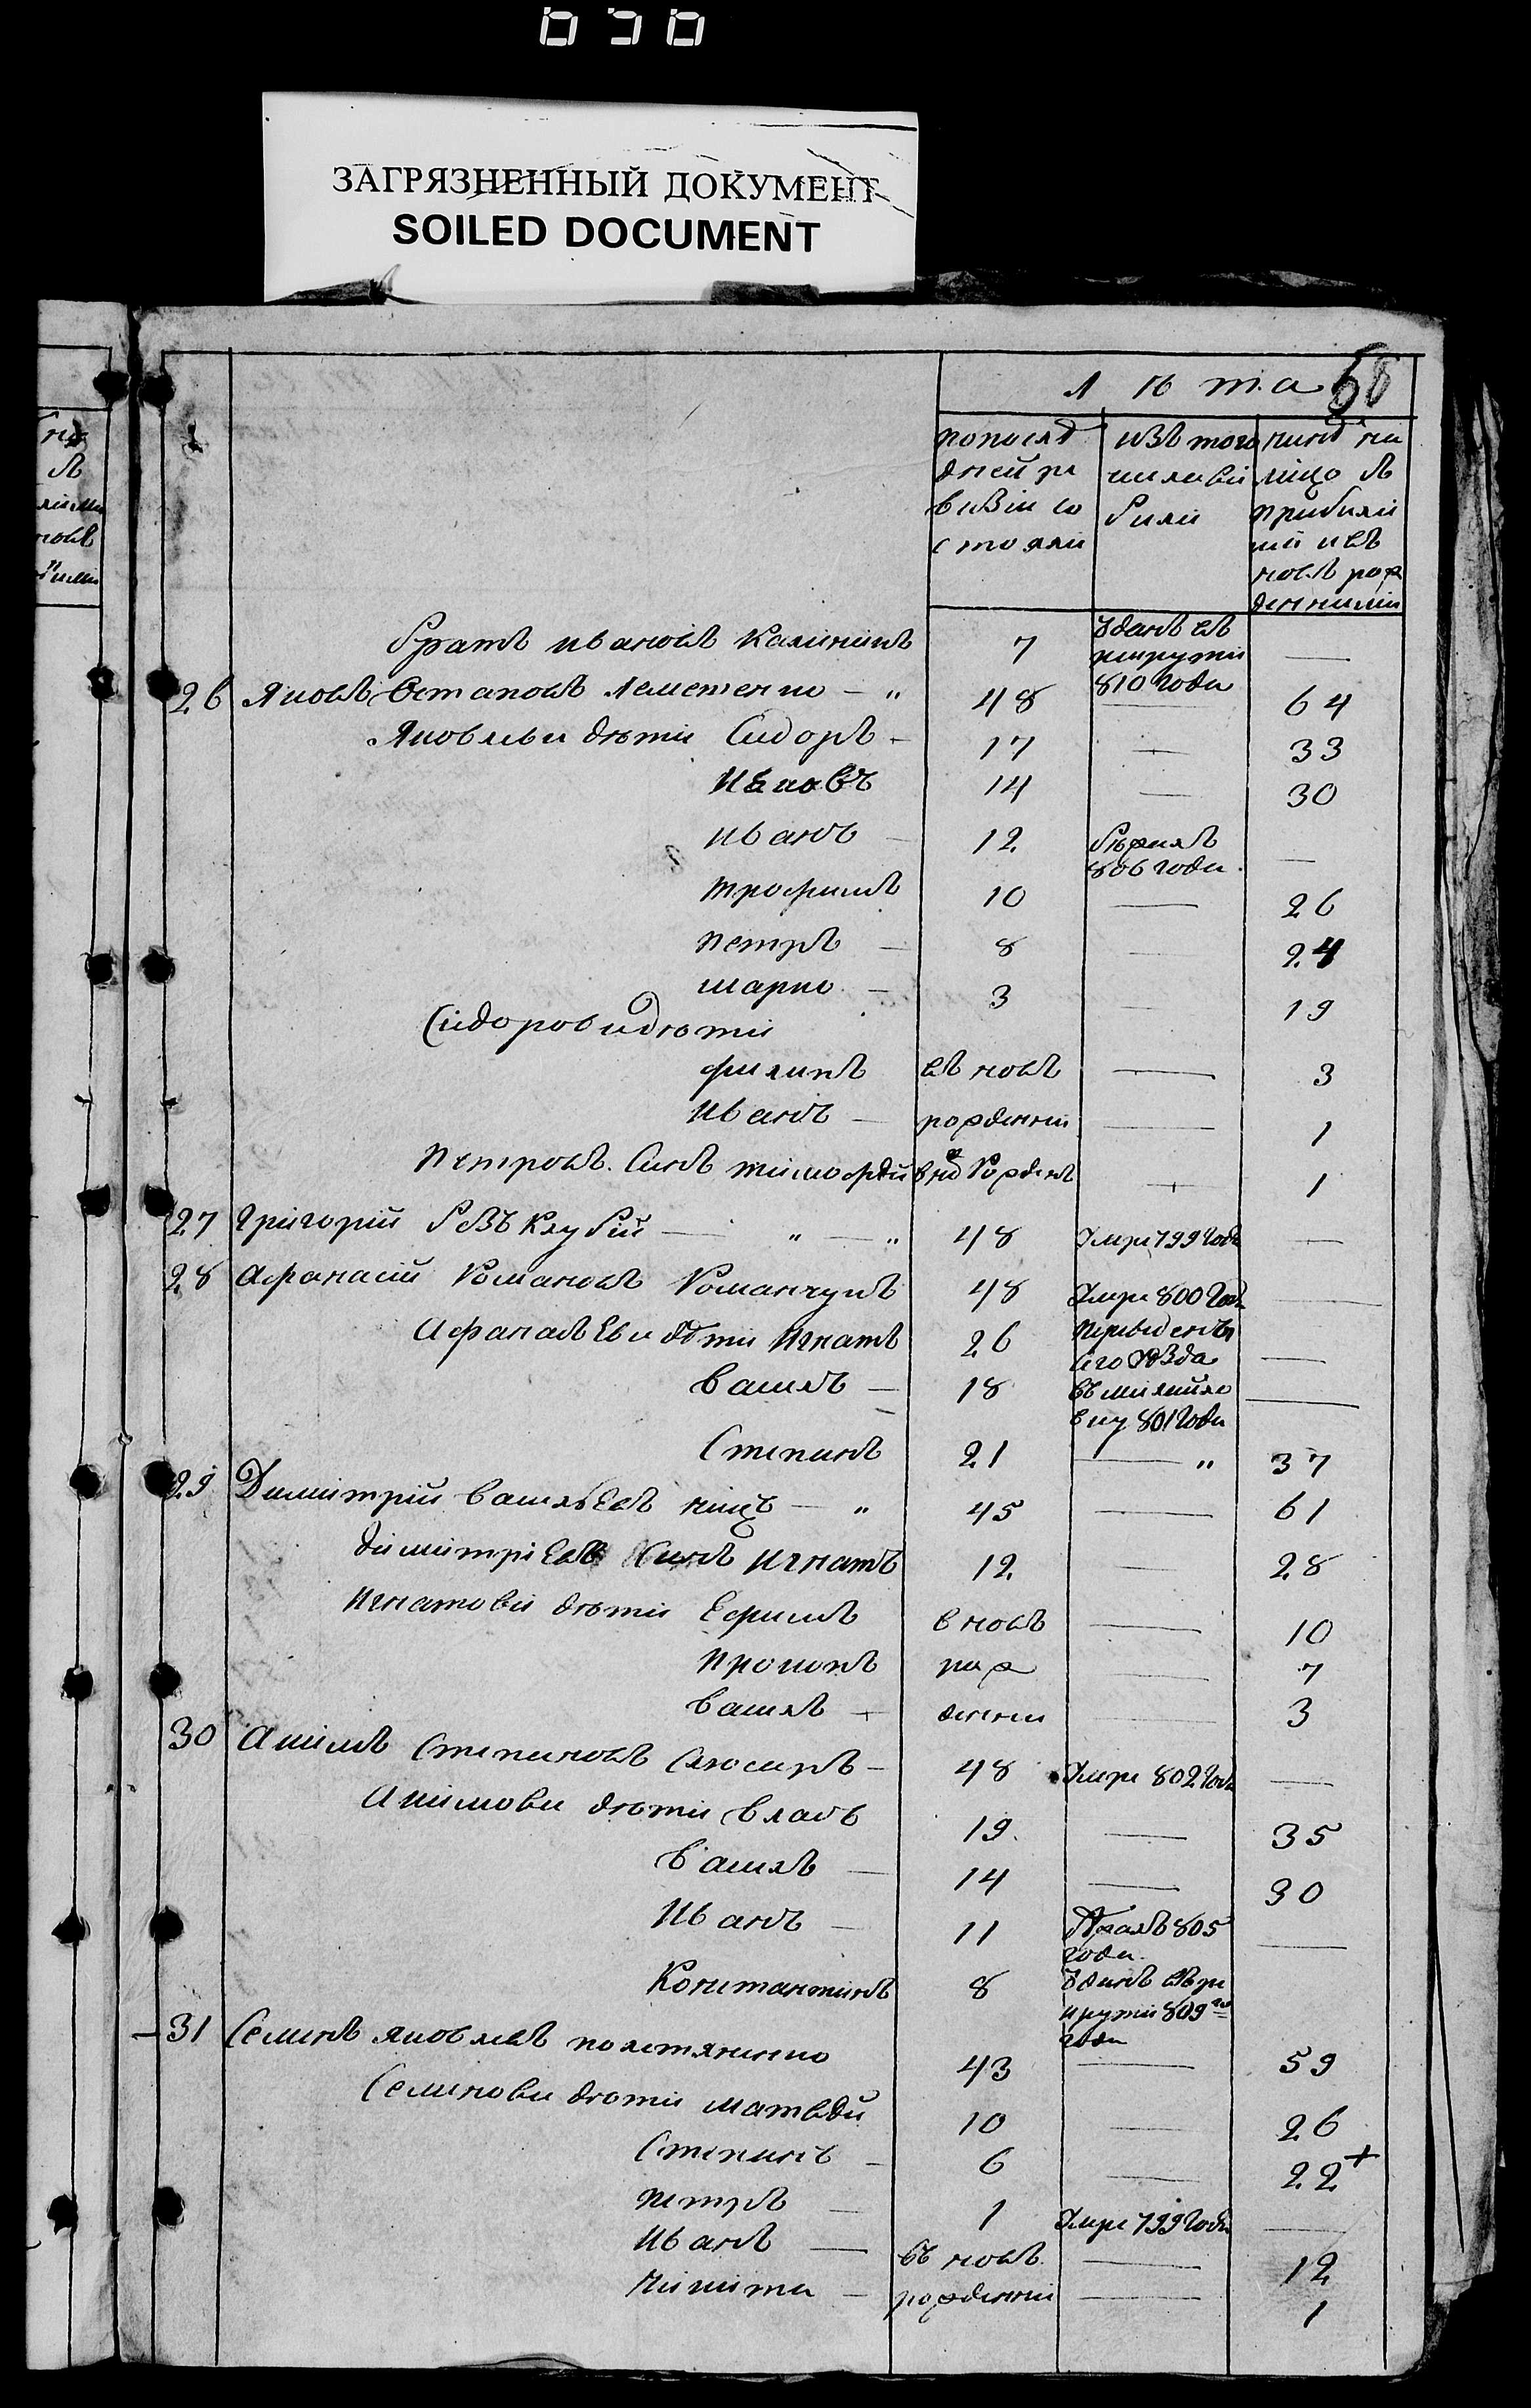 ЗАГРЯЗНЕННЫЙ ДОКУМЕНТ
SOILED DOCUMENT
лѣта 58
попослѣдней ревизіи состояли
изъ того числа выбыли
нинѣ на лицо съ прибылими и въ новь рожденними
братъ ивановъ Калиникъ 7 зданъ въ рекруты 810 года —
26 Яковъ Остаповъ — " 48 — 64
Яковлеви дѣти Сидоръ — 17 — 33
Яковъ 14 — 30
иванъ — 12 бѣжалъ 806 года —
трофимъ 10 — 26
петръ — 8 — 24
марко — 3 — 19
Сидорови дѣти
филипъ въ новь — 3
иванъ — рожденни — 1
петровъ Синъ тимофѣй вно рожденъ — 1
27 григорій — " — " 48 Умре 799 года —
28 афанасій Романовъ Романчукъ 48 Умре 800 года —
афанасьеви дѣти игнатъ 26 —
василь — 18 801 года —
Степанъ 21 — " 37
29 Димитрій васильевъ — " 45 — 61
димитріевъ Синъ игнатъ 12 — 28
игнатови дѣти Ефимъ вновь — 10
прокопъ рож — 7
василь — денни — 3
30 акимъ Степановъ Слюсаръ — 48 Умре 802 года —
акимови дѣти власъ 19 — 35
василь — 14 — 30
иванъ — 11 805 года —
Константинъ 8 зданъ въ рекруты 809го года
31 Семенъ яковлевъ 43 — 59
Семенови дѣти матвѣй 10 — 26
Степанъ — 6 — 22 +
петръ — 1 Умре 799 года —
иванъ — въ новь — 12
никита — рожденни — 1